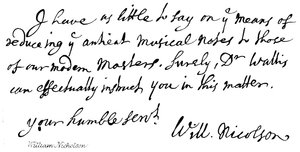 I have as little to say on yͤ means of
reduceing yͤ antient Musical Notes to those
of our modern Masters. Surely, Dʳ Wallis
can effectually instruct you in this matter.
your humble servᵗ.
Will. Nicolson
William Nicholson